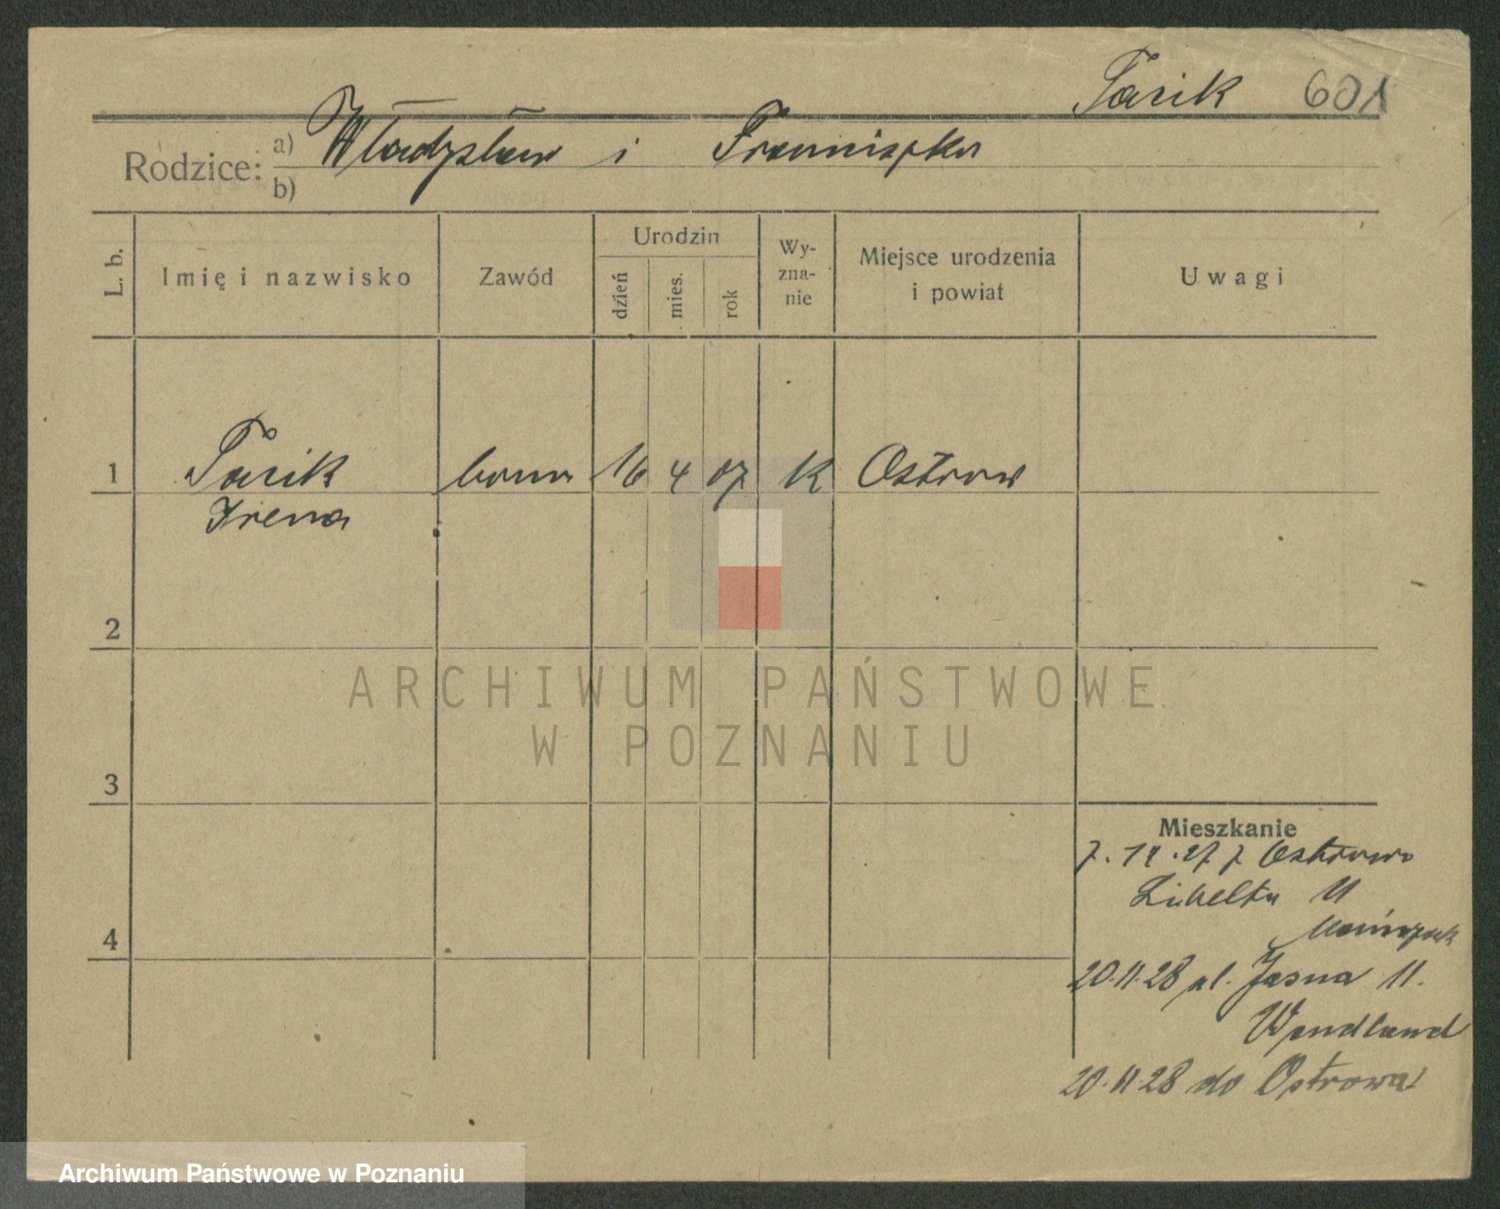 Tasik 601
Rodzice: a) Władysław i Franciszka
b)
L. b.
Imię i nazwisko
Zawód
Urodzin
dzień
mies.
rok
Wy-
zna-
nie
Miejsce urodzenia
i powiat
Uwagi
1 Tasik bona 16 4 07 K Ostrow
Irena
2
3
4
Mieszkanie
7. 12. 27 z Ostrowa
Libelta 11
20.11.28 ul. Jasna 11.
Wendland
20.11.28 do Ostrowa
ARCHIWUM PAŃSTWOWE
W POZNANIU
Archiwum Państwowe w Poznaniu